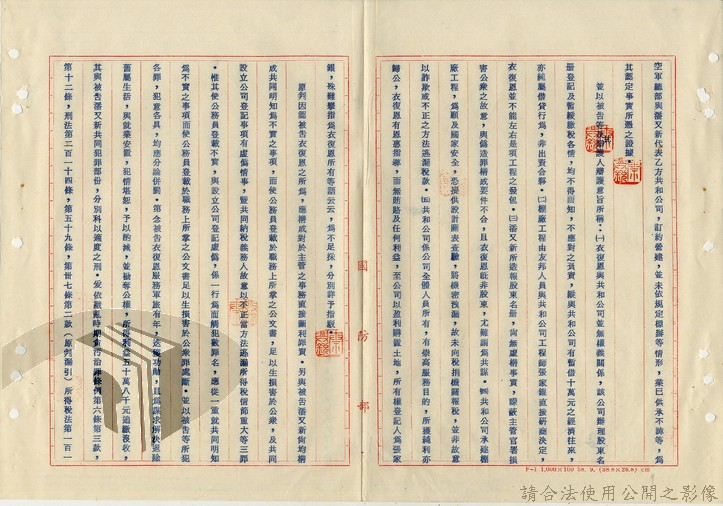 空軍總部與潘又新代表乙方共和公司，訂約營建，並未依規定標辦等情形，業已供承不諱等，為
其認定事實所憑之證據。
並以被告等及辯護人辯護意旨所稱：㈠衣復恩與共和公司並無權義關係，該公司辦理股東名
冊登記及暫緩繳稅各情，均不得而知，不應對之負責，縱與共和公司有暫借十萬元之經濟往來，
亦純屬借貸行為，非出資合夥。㈡棚廠工程由友邦人員與共和公司工程師張家鐵直接研商決定，
衣復恩並不能左右是項工程之發包。㈢潘又新所造報股東名冊，尚無虛構事實，矇蔽主管官署損
害公衆之故意，與偽造罪構成要件不合，且衣復恩既非股東，尤難謂為共謀。㈣共和公司承建棚
廠工程，為顧及國家安全，恐提供設計圖表查驗，將機密洩漏，故未向稅捐機關報稅，並非故意
以詐欺或不正之方法逃漏稅款。㈤共和公司係公司全體人員所有，有崇高服務目的，所獲純利亦
歸公，衣復恩有恩惠指導，而無賄賂及任何利益，至公司以盈利購置土地，所有權登記人為張家
鐵，殊難攀指為衣復恩所有等語云云，為不足採，分別詳予指駁。
原判因認被告衣復恩之所為，應構成對於主管之事務直接圖利罪責。另與被告潘又新尚均構
成共同明知為不實之事項，而使公務員登載於職務上所掌之公文書，足以生損害於公衆，及共同
設立公司登記事項有虛偽情事，暨共同納稅義務人故意以不正當方法逃漏所得稅情節重大等三罪
，惟其使公務員登載不實，與設立公司登記虛偽，係一行為而觸犯數罪名，應從一重就共同明知
為不實之事項而使公務員登載於職務上所掌之公文書足以生損害於公衆罪處斷。並以被告等所犯
各罪，犯意各具，均應分論併罰。第念被告衣復恩服務軍旅有年，迭著功勳，且為謀求解決退除
舊屬生活，與就業安置，犯情堪恕，予以酌減，並褫奪公權，所得利益五十萬八千元追繳沒收，
其與被告潘又新共同犯罪部份，分別科以適度之刑。爰依戡亂時期貪污治罪條例第六條第三款，
第十二條，刑法第二百一十四條，第五十九條，第卅七條第二款（原判漏引）所得稅法第一百一
國防部
P-1 1,000×100 58. 9. (38.8×26.8) cm
請合法使用公開之影像